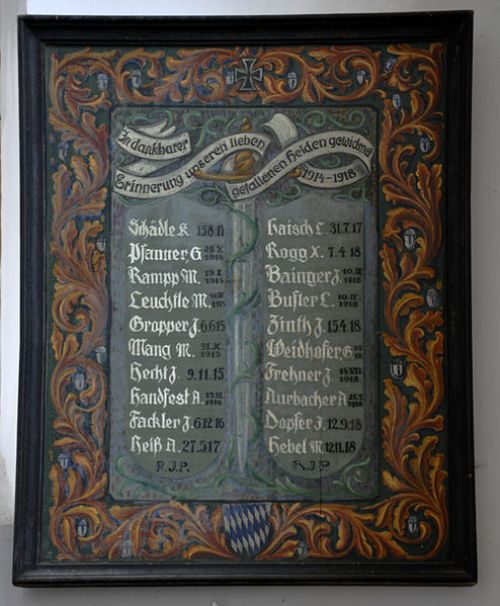 In dankbarer
Erinnerung unseren lieben
gefallenen Helden gewidmet
1914-1918
Schädle K. 15.8.11
Pfanner G.
Rampp M.
Leuchtle M.
Gropper J. 6.6.15
Mang M. 31.X. 1915
Hecht J. 9.11.15
Handfest A.
Fackler J. 6.12.16
Heiß A. 27.5.17
R.J.P.
Haisch L. 31.7.17
Rogg X. 7.4.18
Bainger J. 1918
Bufler L. 10.IV. 1918
Zinth J. 15.4.18
Weidhofer G.
Frehner J. 1918
Aurbacher A.
Dopfer J. 12.9.18
Hebel M. 12.11.18
R.J.P